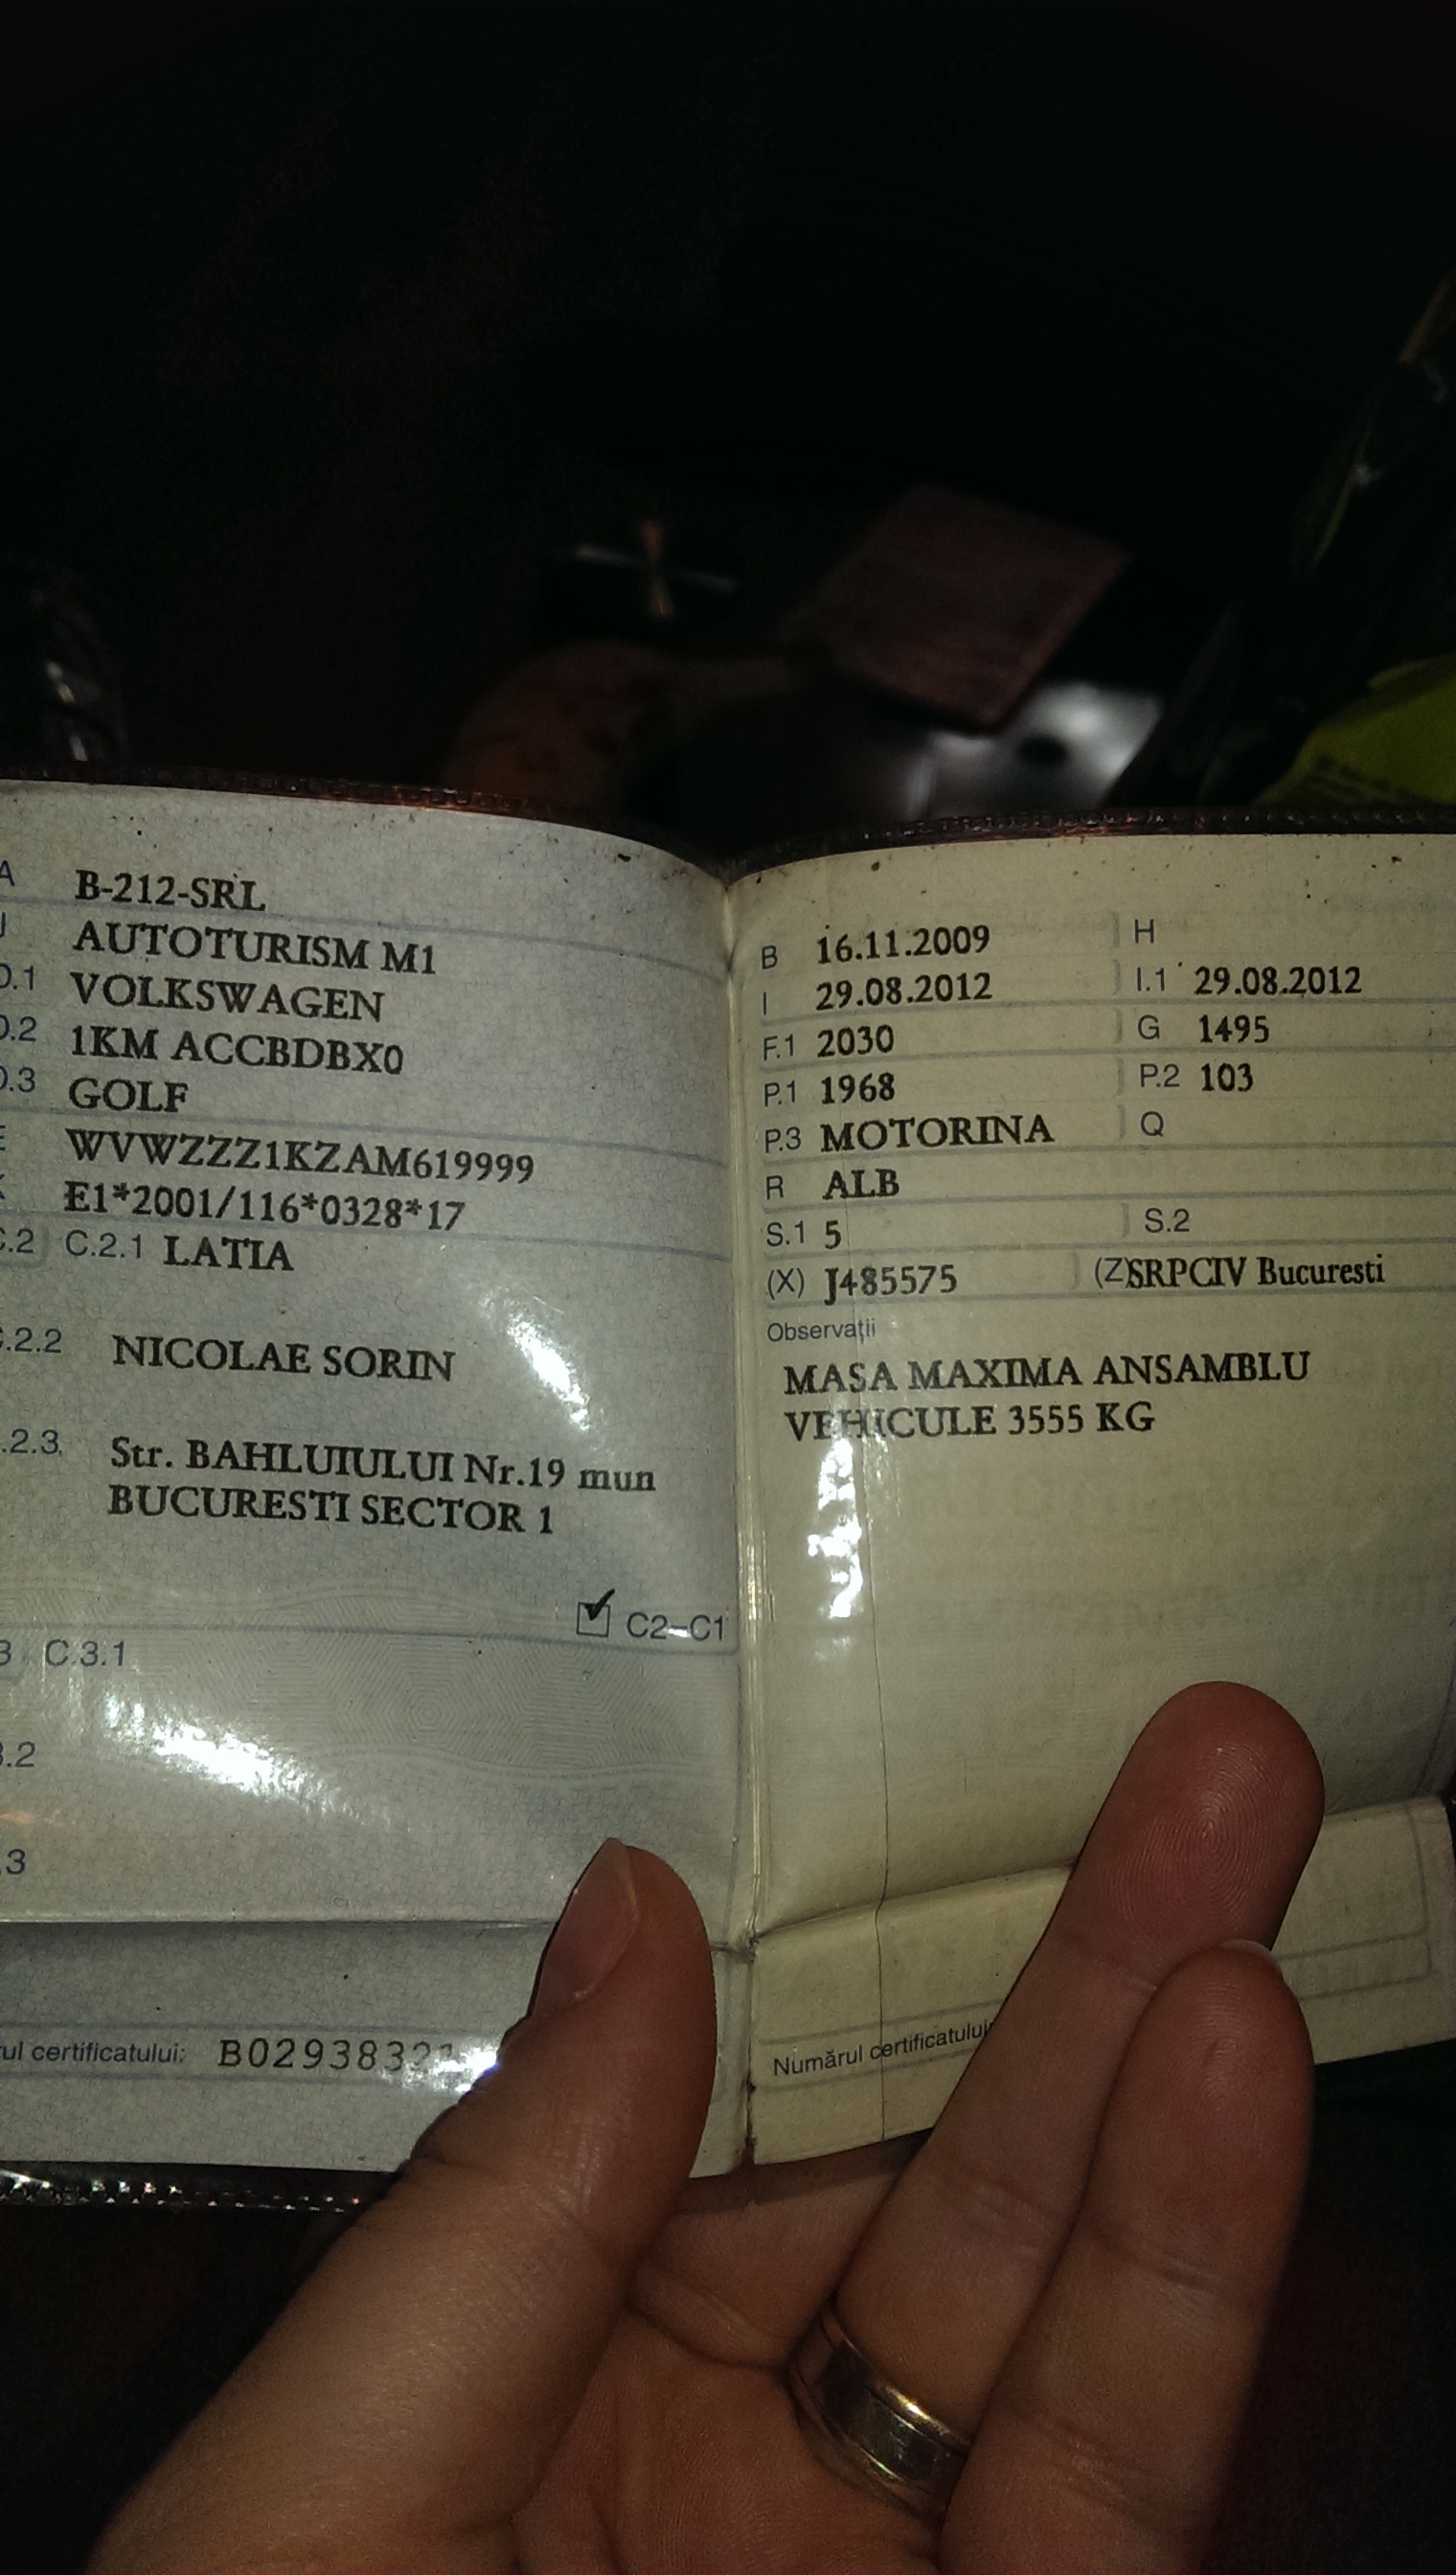 A B-212-SRL
J AUTOTURISM M1
D.1 VOLKSWAGEN
D.2 1KM ACCBDBX0
D.3 GOLF
E WVWZZZ1KZAM619999
K E1*2001/116*0328*17
C.2 C.2.1 LATIA
C.2.2 NICOLAE SORIN
.2.3 Str. BAHLUIULUI Nr.19 mun
BUCURESTI SECTOR 1
C2–C1
3 C.3.1
3.2
.3
rul certificatului: B0293832
B 16.11.2009 H
I 29.08.2012 I.1 29.08.2012
F.1 2030 G 1495
P.1 1968 P.2 103
P.3 MOTORINA Q
R ALB
S.1 5 S.2
(X) J485575 (Z)SRPCIV Bucuresti
Observații
MASA MAXIMA ANSAMBLU
VEHICULE 3555 KG
Numărul certificatului